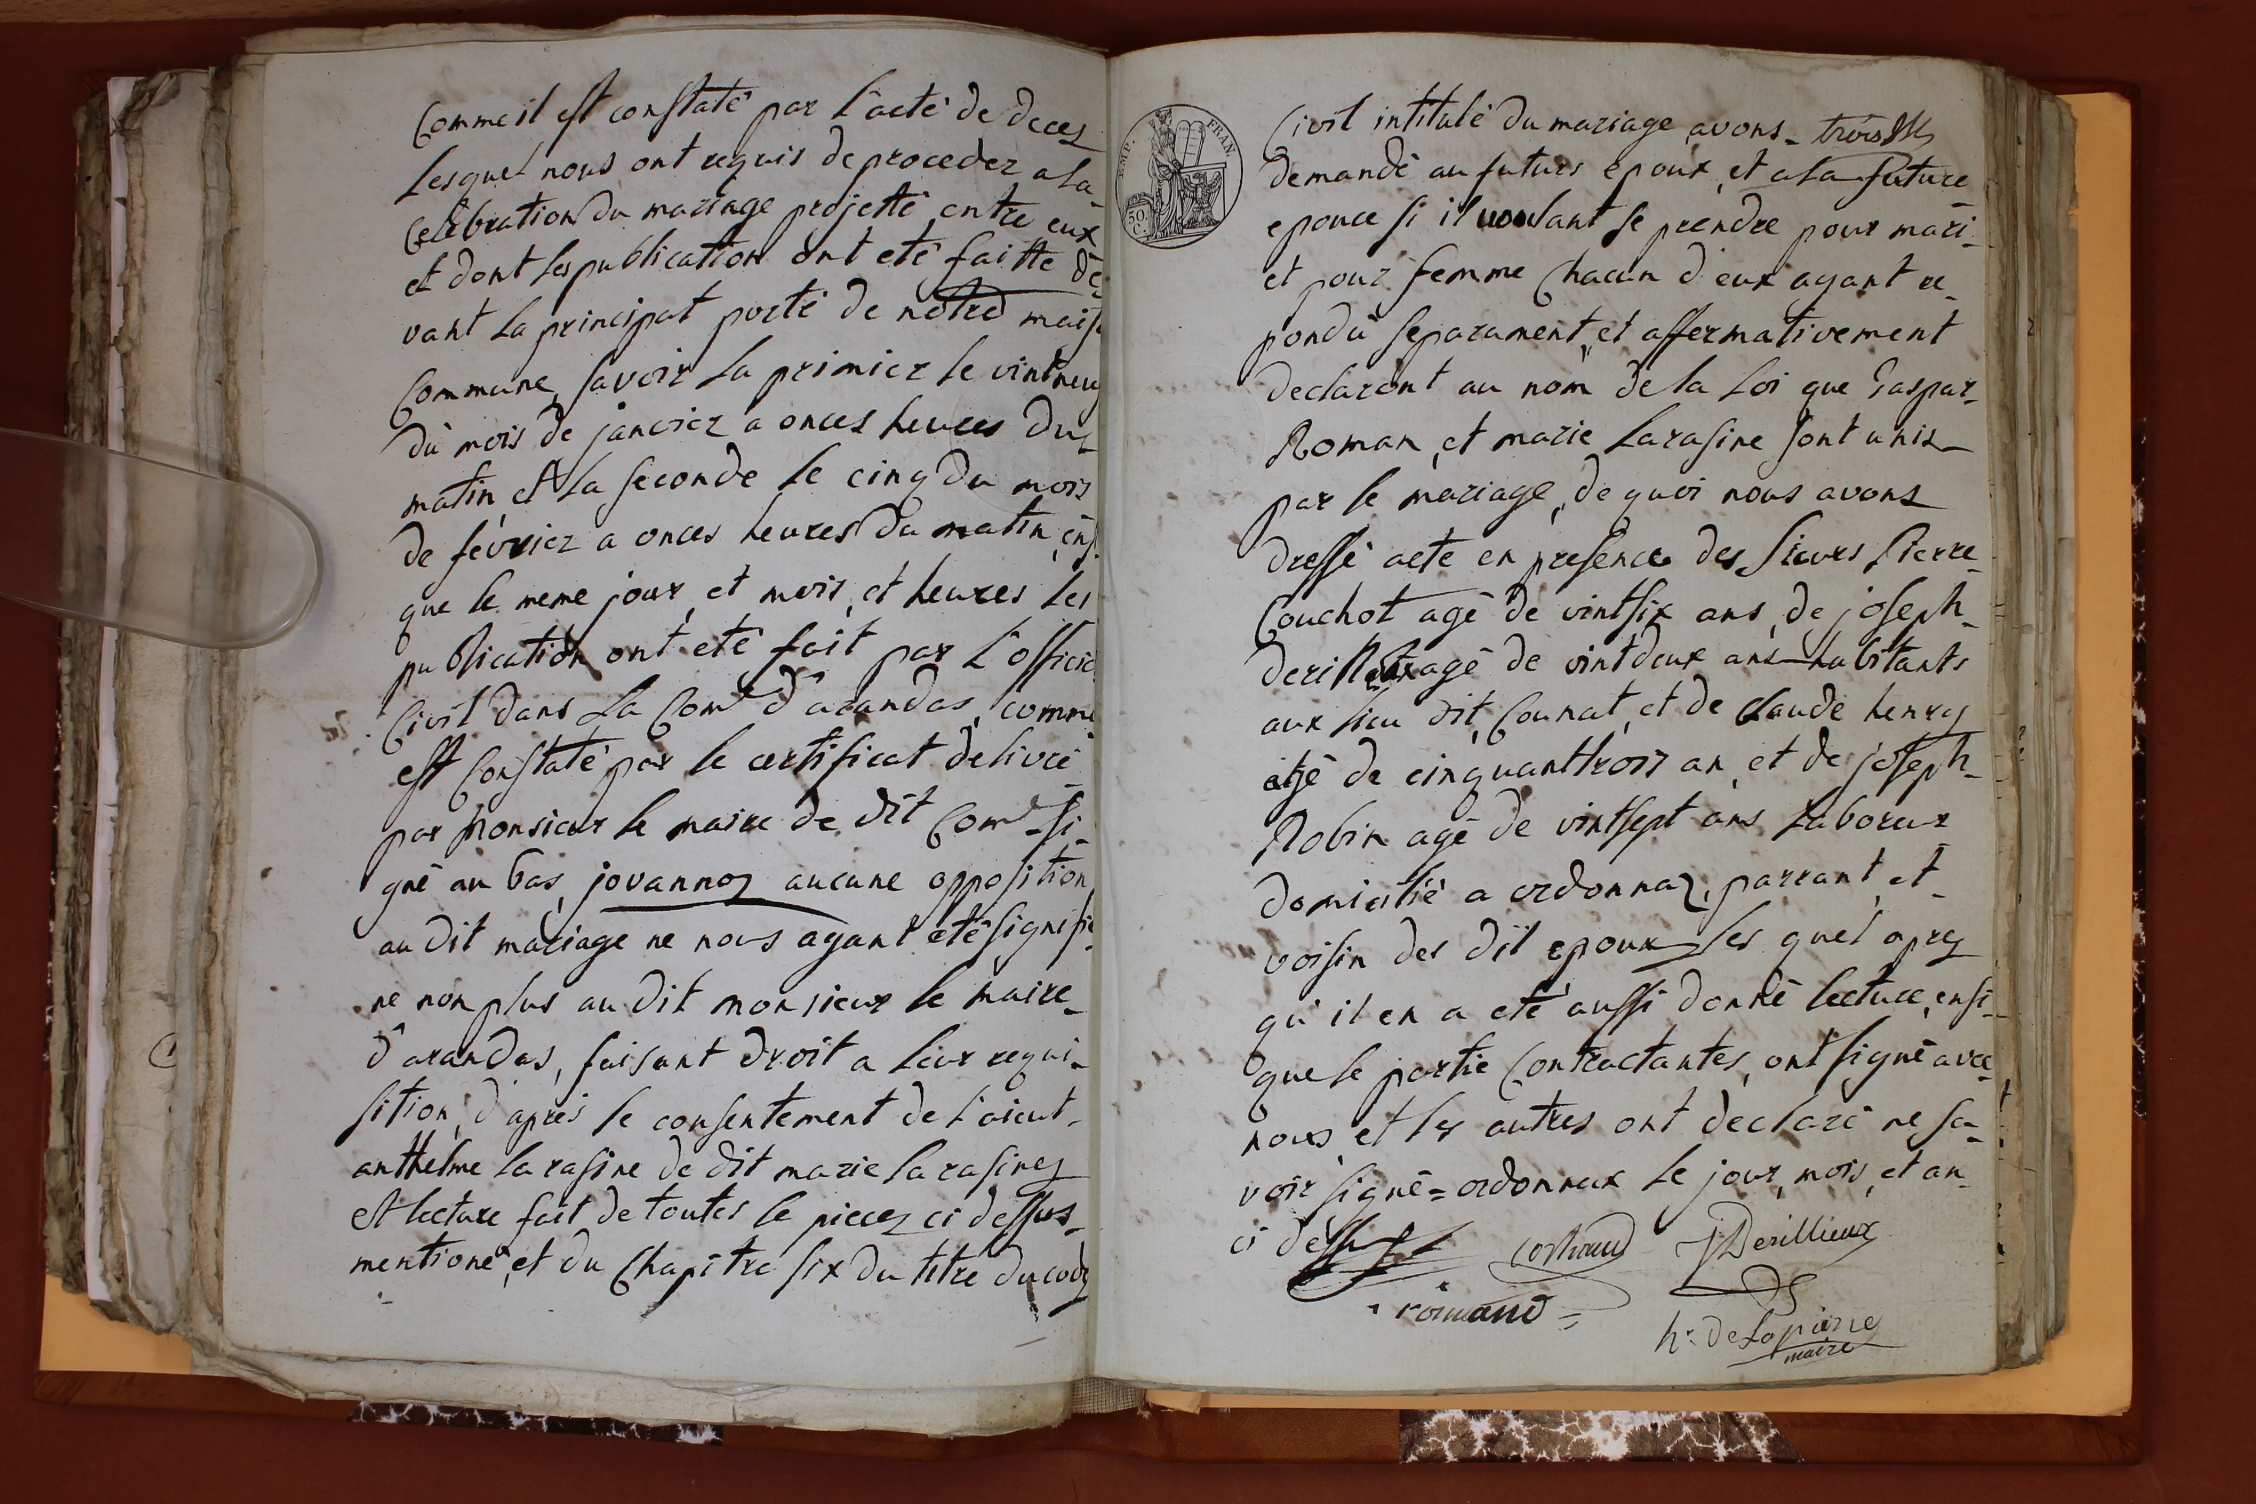 Comme il est constaté par l'acté de deces
Lesquel nous ont requis de proceder a la
Celebration du mariage projetté entre eux
et dont les publication ont eté faitte de
vant la principat porté de notre maiso
Commune, savoir la primier le vintneuf
du mois de janvier a onces heures du
matin et la seconde le cinq du mois
de fevrier a onces heures du matin, ensi
que le meme jour, et mois, et heures les
publication ont eté fait par l'officie
Civil dans la Com.e d'arandas, comme
est Constaté par le certificat delivré
par Monsieur le maire de dit Com.e si-
gné au bas, jovannoz aucune opposition
au dit mariage ne nous ayant eté signifie
ne non plus au dit monsieur le maire
d'arandas, faisant droit a leur requi-
sition, d'aprés le consentement de l'aieut
anthelme larasine de dit marie la rasinez
et lecture fait de toutes le piecez ci dessus
mentioné, et du Chapitre six du titre du code
IMP. FRAN.
50. C.
Civil intitulé du mariage, avons
demandé au futurs epoux, et a la future
epouce si il veulant se prendre pour mari
et pour femme Chacun d'eux ayant re-
pondu separament, et affermativement
declaront au nom de la Loi que Gaspar
Roman, et marie Larasine sont unis
par le mariage, de quoi nous avons
dressé acte en presence des sieurs Pierre
Couchot agé de vintsix ans, de joseph
agé de vintdeux ans habitants
aux lieu dit, Counat, et de Claude henry
agé de cinquanttrois an, et de joseph
Robin agé de vintsept ans laboreur
domicilié a ordonnaz, parrant, et
voisin des dit epoux les quel aprez
qu'il en a eté aussi donné lecture, ensi
que le partie Contractantes, ont signé avec
nous, et les autres ont declaré ne sa-
voir signé = ordonnax le jour, mois, et an
ci dessus
JDerillieux
romand
h.r delapierre
maire